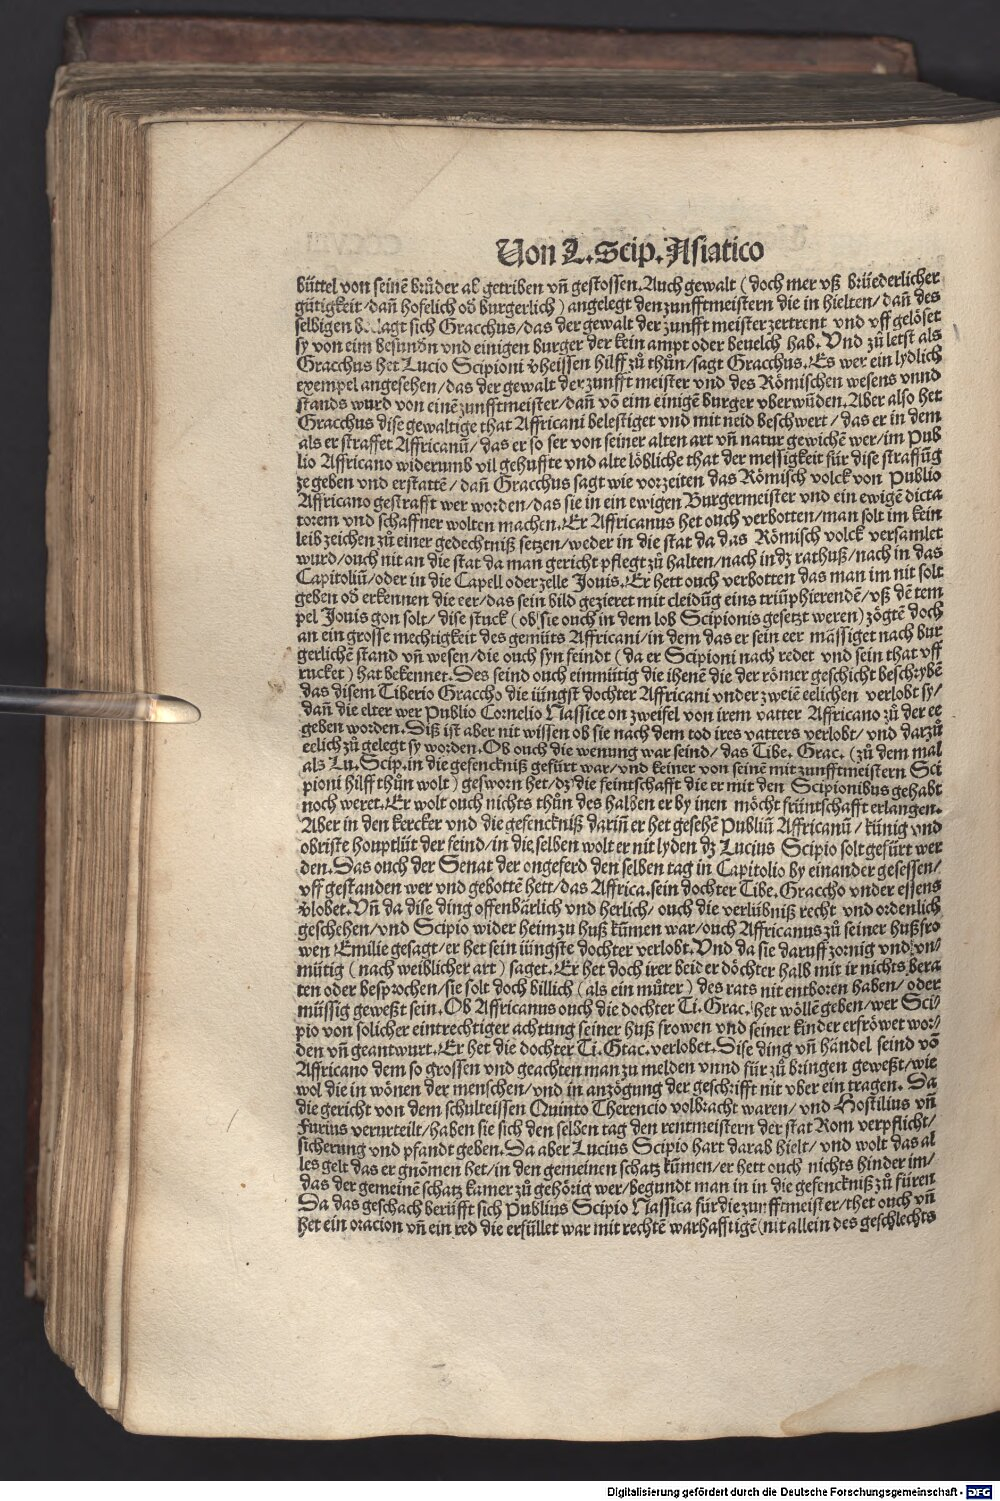 Von L. Scip. Asiatico
büttel von seinē brůder ab getriben vñ gestossen. Auch gewalt (doch mer vß brüederlicher
gütigkeit/dañ hofelich od̄ burgerlich) angelegt den zunfftmeistern die in hielten/dañ des
selbigen sich Gracchus/das der gewalt der zunfft meister zertrent vnd vff gelöset
sy von eim besundn vnd einigen burger der kein ampt oder beuelch hab. Vnd zů letst als
Gracchus het Lucio Scipioni v̄heissen hilff zů thůn/sagt Gracchus. Es wer ein lydlich
exempel angesehen/das der gewalt der zunfft meister vnd des Römischen wesens vnnd
stands wurd von einē zunfftmeister/dañ vō eim einigē burger vberwūden. Aber also het
Gracchus dise gewaltige that Affricani belestiget vnd mit neid beschwert/das er in dem
als er straffet Affricanū/das er so ser von seiner alten art vñ natur gewichē wer/im Pub
lio Affricano widerumb vil gehuffte vnd alte löbliche that der messigkeit für dise straffūg
ze geben vnd erstattē/dañ Gracchus sagt wie vorzeiten das Römisch volck von Publio
Affricano gestrafft wer worden/das sie in ein ewigen Burgermeister vnd ein ewigē dicta
torem vnd schaffner wolten machen. Er Affricanus het ouch verbotten/man solt im kein
leib zeichen zů einer gedechtniß setzen/weder in die stat da das Römisch volck versamlet
wurd/ouch nit an die stat da man gericht pflegt zů halten/nach in dz rathuß/nach in das
Capitoliū/oder in die Capell oder zelle Jouis. Er hett ouch verbotten das man im nit solt
geben od̄ erkennen die eer/das sein bild gezieret mit cleidūg eins triūphierendē/vß dē tem
pel Jouis gon solt/dise stuck (ob sie ouch in dem lob Scipionis gesetzt weren) zögtē doch
an ein grosse mechtigkeit des gemüts Affricani/in dem das er sein eer mässiget nach bur
gerlichē stand vñ wesen/die ouch syn feindt (da er Scipioni nach redet vnd sein that vff
rucket) hat bekennet. Des seind ouch einmütig die ihenē die der römer geschicht beschrybē
das disem Tiberio Graccho die iüngst dochter Affricani vnder zweiē eelichen verlobt sy/
dañ die elter wer Publio Cornelio Nassice on zweifel von irem vatter Affricano zů der ee
geben worden. Diß ist aber nit wissen ob sie nach dem tod ires vatters verlobt/vnd darzů
eelich zů gelegt sy worden. Ob ouch die wenung war seind/das Tibe. Grac. (zů dem mal
als Lu. Scip. in die gefenckniß gefürt war/vnd keiner von seinē mit zunfftmeistern Sci
pioni hilff thůn wolt) gesworn het/dz die feintschafft die er mit den Scipionibus gehabt
noch weret. Er wolt ouch nichts thůn des halben er by inen möcht früntschafft erlangen.
Aber in den kercker vnd die gefenckniß dariñ er het gesehē Publiū Affricanū/künig vnd
obriste houptlüt der feind/in die selben wolt er nit lyden dz Lucius Scipio solt gefürt wer
den. Das ouch der Senat der ongeferd den selben tag in Capitolio by einander gesessen/
vff gestanden wer vnd gebottē hett/das Affrica. sein dochter Tibe. Graccho vnder essens
v̄lobet. Vñ da dise ding offenbärlich vnd herlich/ouch die verlübniß recht vnd ordenlich
geschehen/vnd Scipio wider heim zu huß kūmen war/ouch Affricanus zů seiner hußfro
wen Emilie gesagt/er het sein iüngste dochter verlobt. Vnd da sie daruff zornig vnd vn/
mütig (nach weiblicher art) saget. Er het doch irer beider döchter halb mit ir nichts bera
ten oder besprochen/sie solt doch billich (als ein můter) des rats nit enthoren haben/oder
müssig geweßt sein. Ob Affricanus ouch die dochter Ti. Grac. het wöllē geben/wer Sci/
pio von solicher eintrechtiger achtung seiner huß frowen vnd seiner kinder erfröwet wor/
den vñ geantwurt. Er het die dochter Ti. Grac. verlobet. Dise ding vñ händel seind vō
Affricano dem so grossen vnd geachten man zu melden vnnd für zů bringen geweßt/wie
wol die in wönen der menschen/vnd in anzögung der geschrifft nit vber ein tragen. Da
die gericht von dem schulteissen Quinto Therencio volbracht waren/vnd Hostilius vñ
Furius verurteilt/haben sie sich den selben tag den rentmeistern der stat Rom verpflicht/
sicherung vnd pfandt geben. Da aber Lucius Scipio hart darab hielt/vnd wolt das al
les gelt das er gnōmen het/in den gemeinen schatz kūmen/er hett ouch nichts hinder im/
das der gemeinē schatz kamer zů gehörig wer/begundt man in in die gefenckniß zů füren
Da das geschach berüfft sich Publius Scipio Nassica für die zunfftmeister/thet ouch vñ
het ein oracion vñ ein red die erfüllet war mit rechtē warhafftigē (nit allein des geschlechts
Digitalisierung gefördert durch die Deutsche Forschungsgemeinschaft - DFG